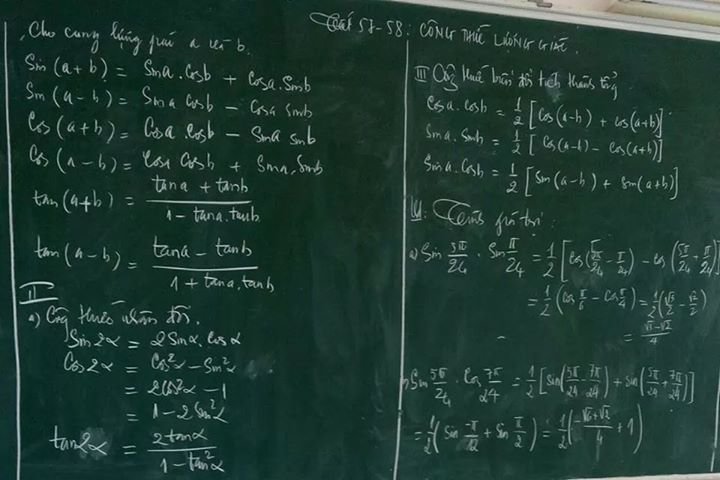 Tiết 57-58: CÔNG THỨC LƯỢNG GIÁC.
Cho cung lượng giác a và b.
Sin(a+b) = Sina.Cosb + Cosa.Sinb
Sin(a-b) = Sina Cosb - Cosa Sinb
Cos(a+b) = Cosa.Cosb - Sina Sinb
Cos(a-b) = Cosa Cosb + Sina.Sinb
tan(a+b) = \frac{tana + tanb}{1 - tana.tanb}
tan(a-b) = \frac{tana - tanb}{1 + tana.tanb}
II
a) Công thức nhân đôi.
Sin2α = 2Sinα.Cosα
Cos2α = Cos²α - Sin²α
= 2Cos²α - 1
= 1 - 2Sin²α
tan2α = \frac{2tanα}{1 - tan²α}
III Công thức biến đổi tích thành tổng
Cosa.Cosb = \frac{1}{2}[Cos(a-b) + Cos(a+b)]
Sina.Sinb = \frac{1}{2}[Cos(a-b) - Cos(a+b)]
Sina.Cosb = \frac{1}{2}[Sin(a-b) + Sin(a+b)]
Tính giá trị:
a) Sin\frac{5π}{24}.Sin\frac{π}{24} = \frac{1}{2}[Cos(\frac{5π}{24} - \frac{π}{24}) - Cos(\frac{5π}{24} + \frac{π}{24})
= \frac{1}{2}(Cos\frac{π}{6} - Cos\frac{π}{4}) = \frac{1}{2}(\frac{√3}{2} - \frac{√2}{2})
= \frac{√3-√2}{4}
Sin\frac{5π}{24}.Cos\frac{7π}{24} = \frac{1}{2}[Sin(\frac{5π}{24} - \frac{7π}{24}) + Sin(\frac{5π}{24} + \frac{7π}{24})]
= \frac{1}{2}(Sin\frac{-π}{12} + Sin\frac{π}{2}) = \frac{1}{2}(\frac{-√6+√2}{4} + 1)